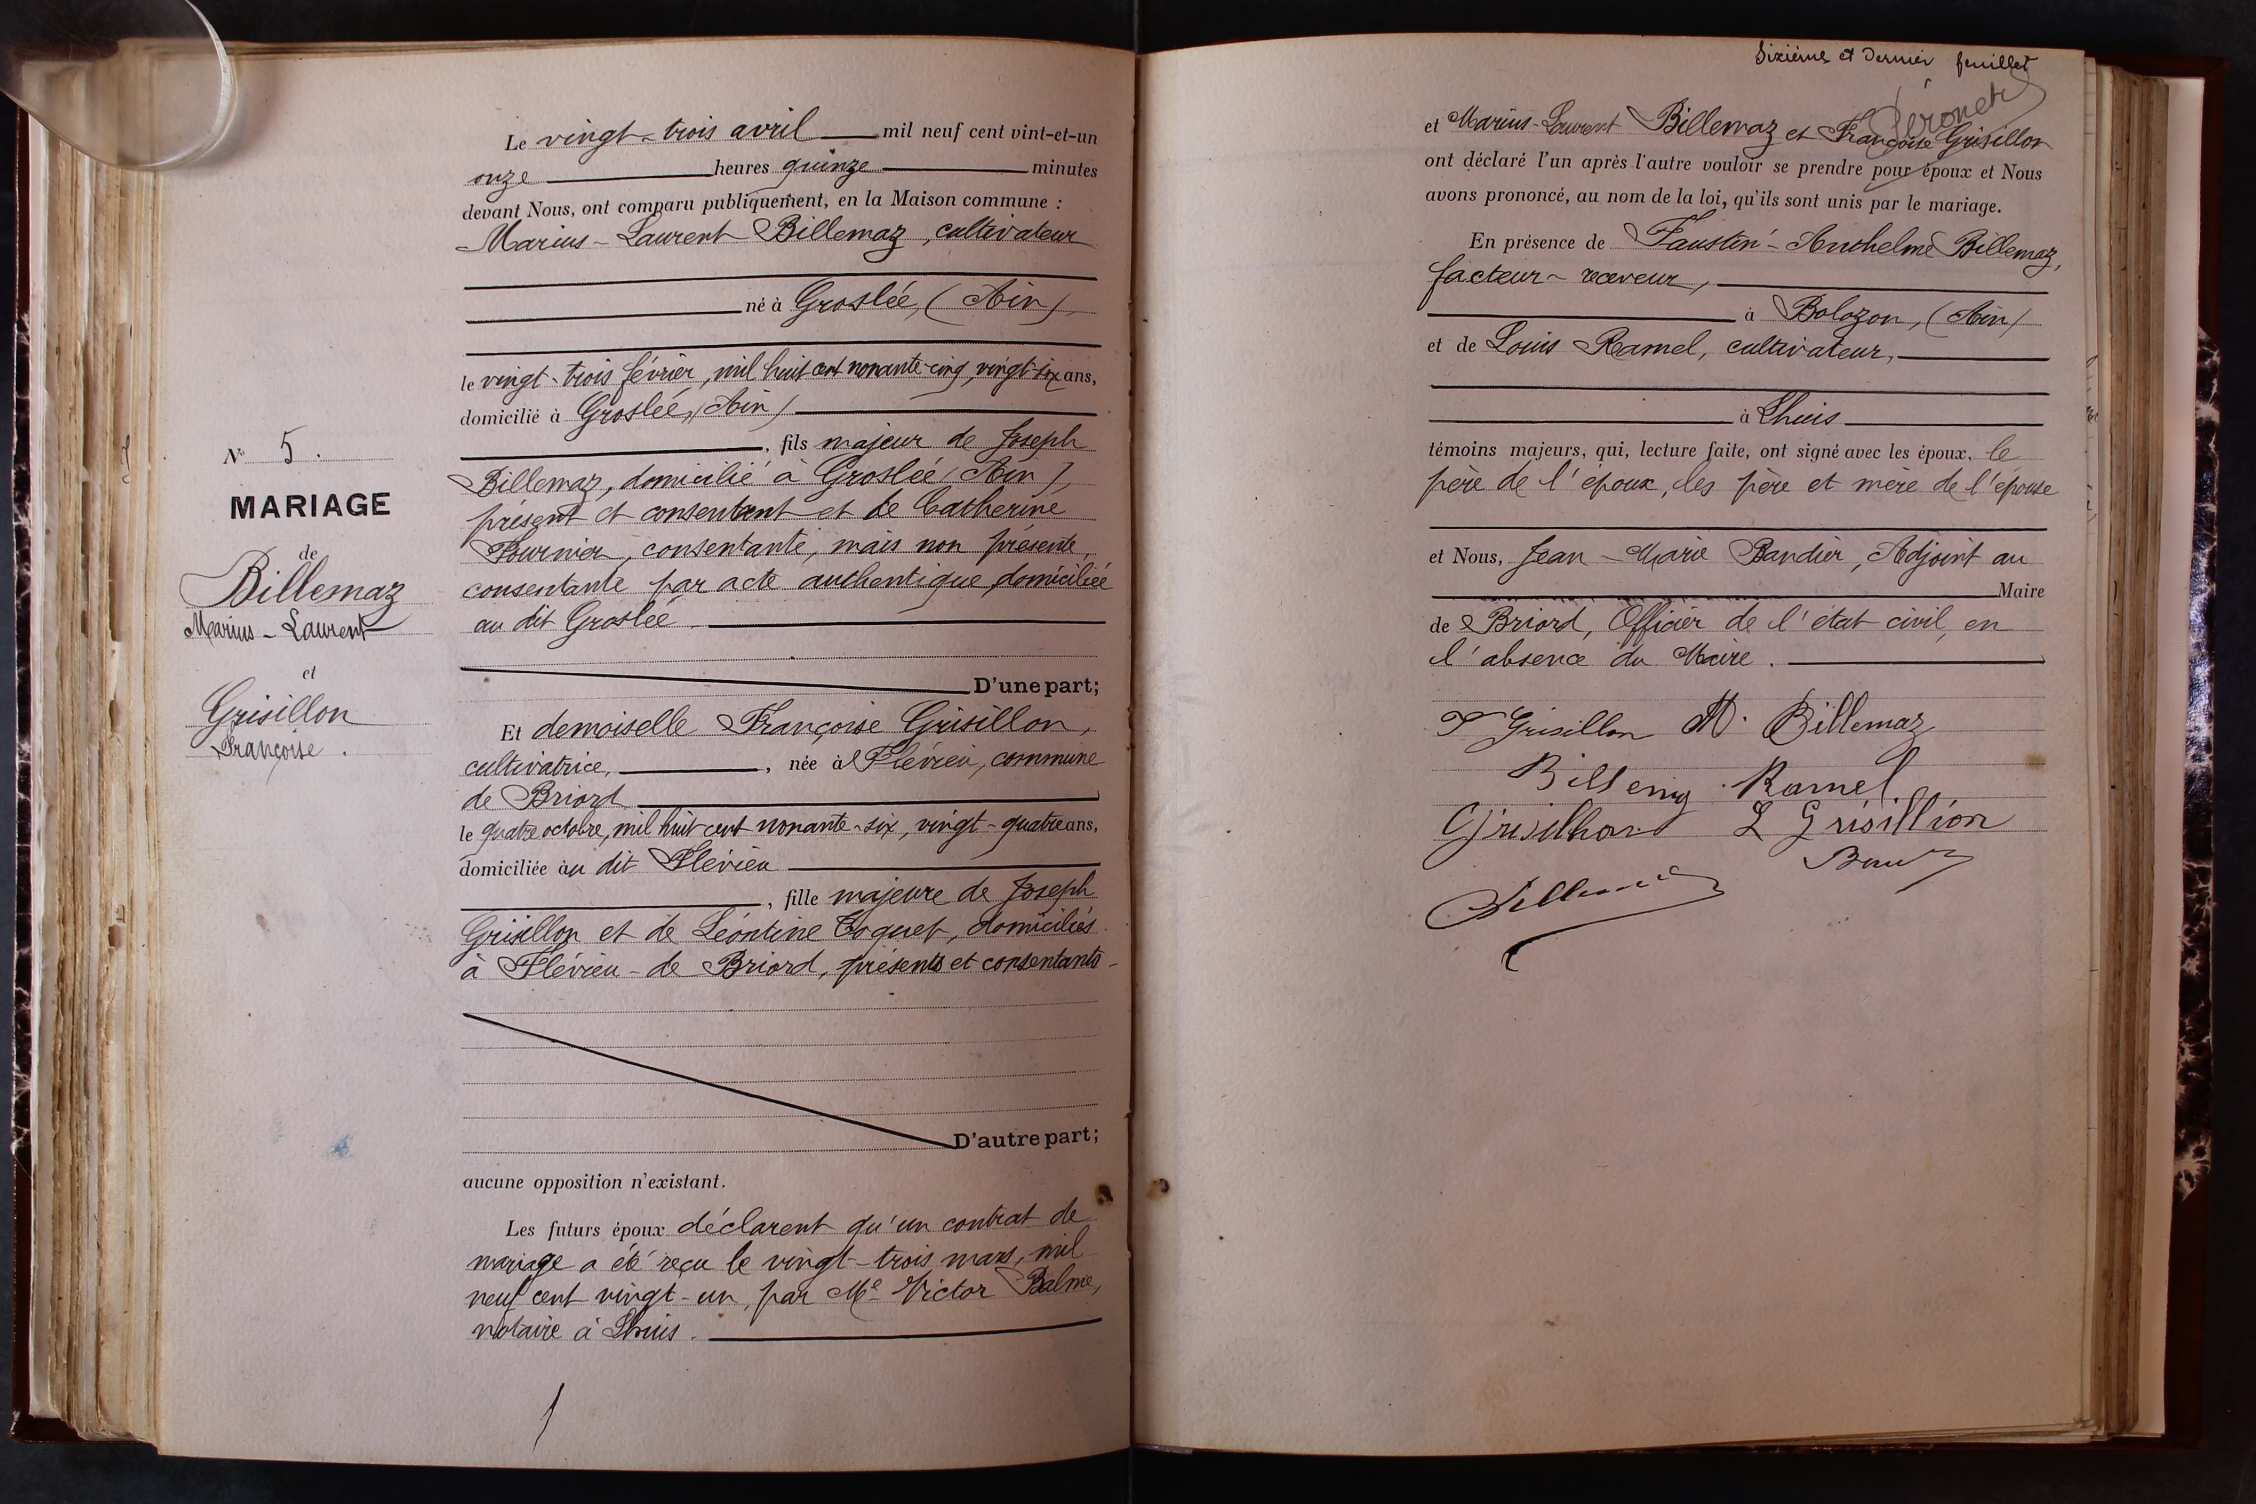 Nº 5.
MARIAGE
de
Billemaz
Marius-Laurent
et
Grisillon
Françoise.
Le vingt-trois avril mil neuf cent vint-et-un
onze heures quinze minutes
devant Nous, ont comparu publiquement, en la Maison commune :
Marius-Laurent Billemaz, cultivateur
né à Groslée, (Ain),
le vingt-trois février, mil huit cent nonante-cinq, vingt-six ans,
domicilié à Groslée, (Ain)
, fils majeur de Joseph
Billemaz, domicilié à Groslée (Ain),
présent et consentant et de Catherine
Fournier, consentante, mais non présente,
consentante par acte authentique, domiciliée
au dit Groslée.
D'une part;
Et demoiselle Françoise Grisillon,
cultivatrice, , née à Flévieu, commune
de Briord
le quatre octobre, mil huit cent nonante-six, vingt-quatre ans,
domiciliée au dit Flévieu
, fille majeure de Joseph
Grisillon et de Léontine Coquet, domiciliés
à Flévieu-de Briord, présents et consentants
D'autre part;
aucune opposition n'existant.
Les futurs époux déclarent qu'un contrat de
mariage a été reçu le vingt-trois mars, mil
neuf cent vingt-un, par Me Victor Balme,
notaire à Lhuis.
Sixième et dernier feuillet
et Marius-Laurent Billemaz et Françoise Grisillon
ont déclaré l'un après l'autre vouloir se prendre pour époux et Nous
avons prononcé, au nom de la loi, qu'ils sont unis par le mariage.
En présence de Faustin-Anthelme Billemaz,
facteur-receveur,
à Bolozon, (Ain)
et de Louis Ramel, cultivateur,
à Lhuis
témoins majeurs, qui, lecture faite, ont signé avec les époux, le
père de l'époux, les père et mère de l'épouse
et Nous, Jean-Marie Bandier, Adjoint au
Maire
de Briord, Officier de l'état civil, en
l'absence du Maire.
F Grisillon M. Billemaz
Billemaz Ramel
Grisillon L Grisillion